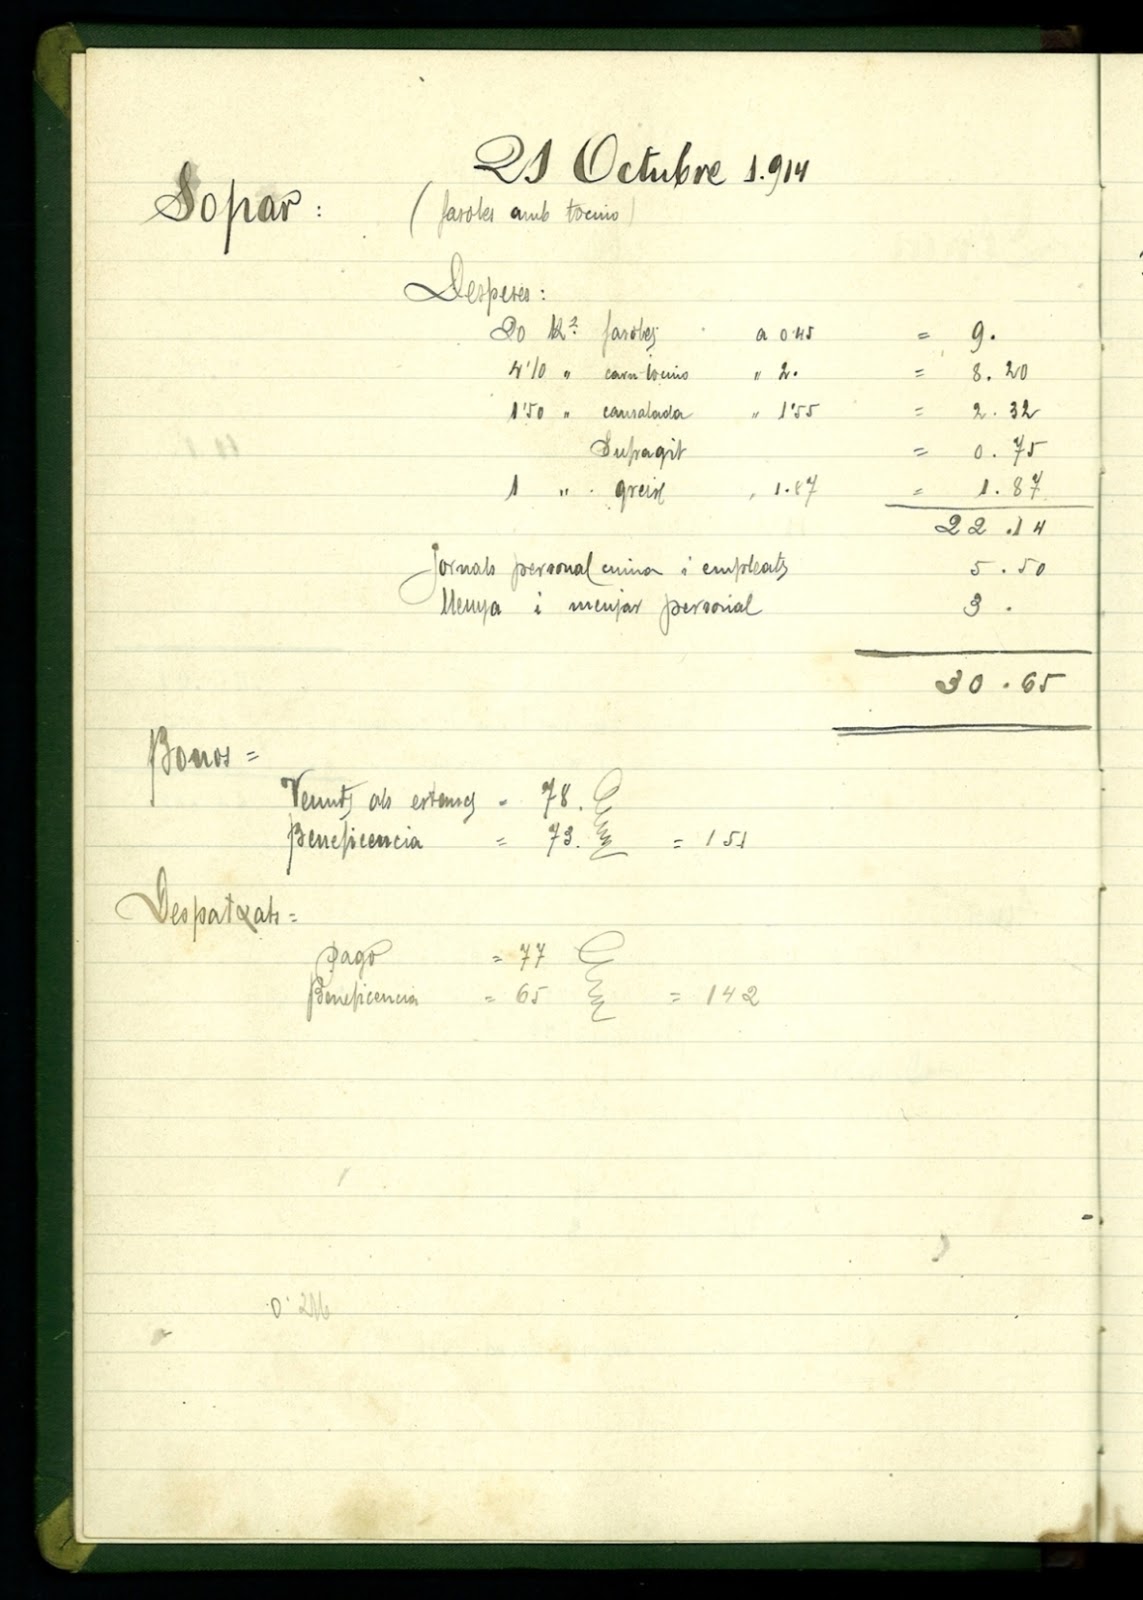 21 Octubre 1.914
Sopar :
( faroles amb tocino )
Despeses :
20 Ks faroles a 0'45 = 9.
4'10 " carn tocino " 2. = 8.20
1'50 " cansalada " 1'55 = 2.32
Sufragit = 0.75
1 " greix " 1.87 = 1.87
22.14
Jornals personal cuina i empleats 5.50
Llenya i menjar personal 3.
30.65
Bonos =
Venuts als externs = 78.
Beneficencia = 73. = 151
Despatxats =
Pago = 77
Beneficencia = 65 = 142